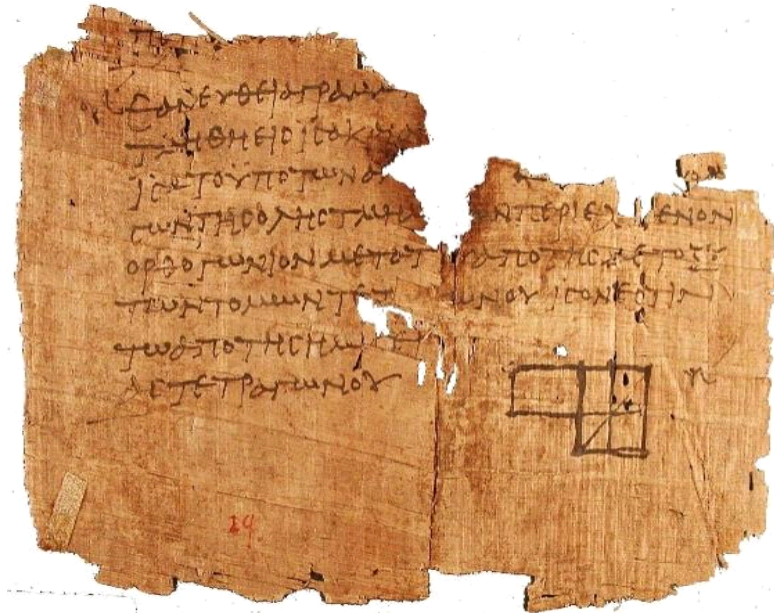 ΕΑΝ ΕΥΘΕΙΑ ΓΡΑΜ
ΤΜΗΘΗ ΕΙϹ ΙϹΑ ΚΑΙ
ΙϹΑ ΤΟ ΥΠΟ ΤΩΝ
ϹΩΝ ΤΗϹ ΟΛΗϹ ΤΜΗ ΩΝ ΠΕΡΙΕΧ ΜΕΝΟΝ
ΟΡΘΟΓΩΝΙΟΝ ΜΕΤΑ ΤΟΥ ΑΠΟ ΤΗϹ ΜΕΤΟΞΥ
ΤΩΝ ΤΟΜΩΝ ΤΕΤ ΓΩΝΟΥ ΙϹΟΝ ΕϹΤΙΝ
ΤΩ ΑΠΟ ΤΗϹ ΗΜΙ
ΑϹ ΤΕΤΡΑΓΩΝΟΥ
29.